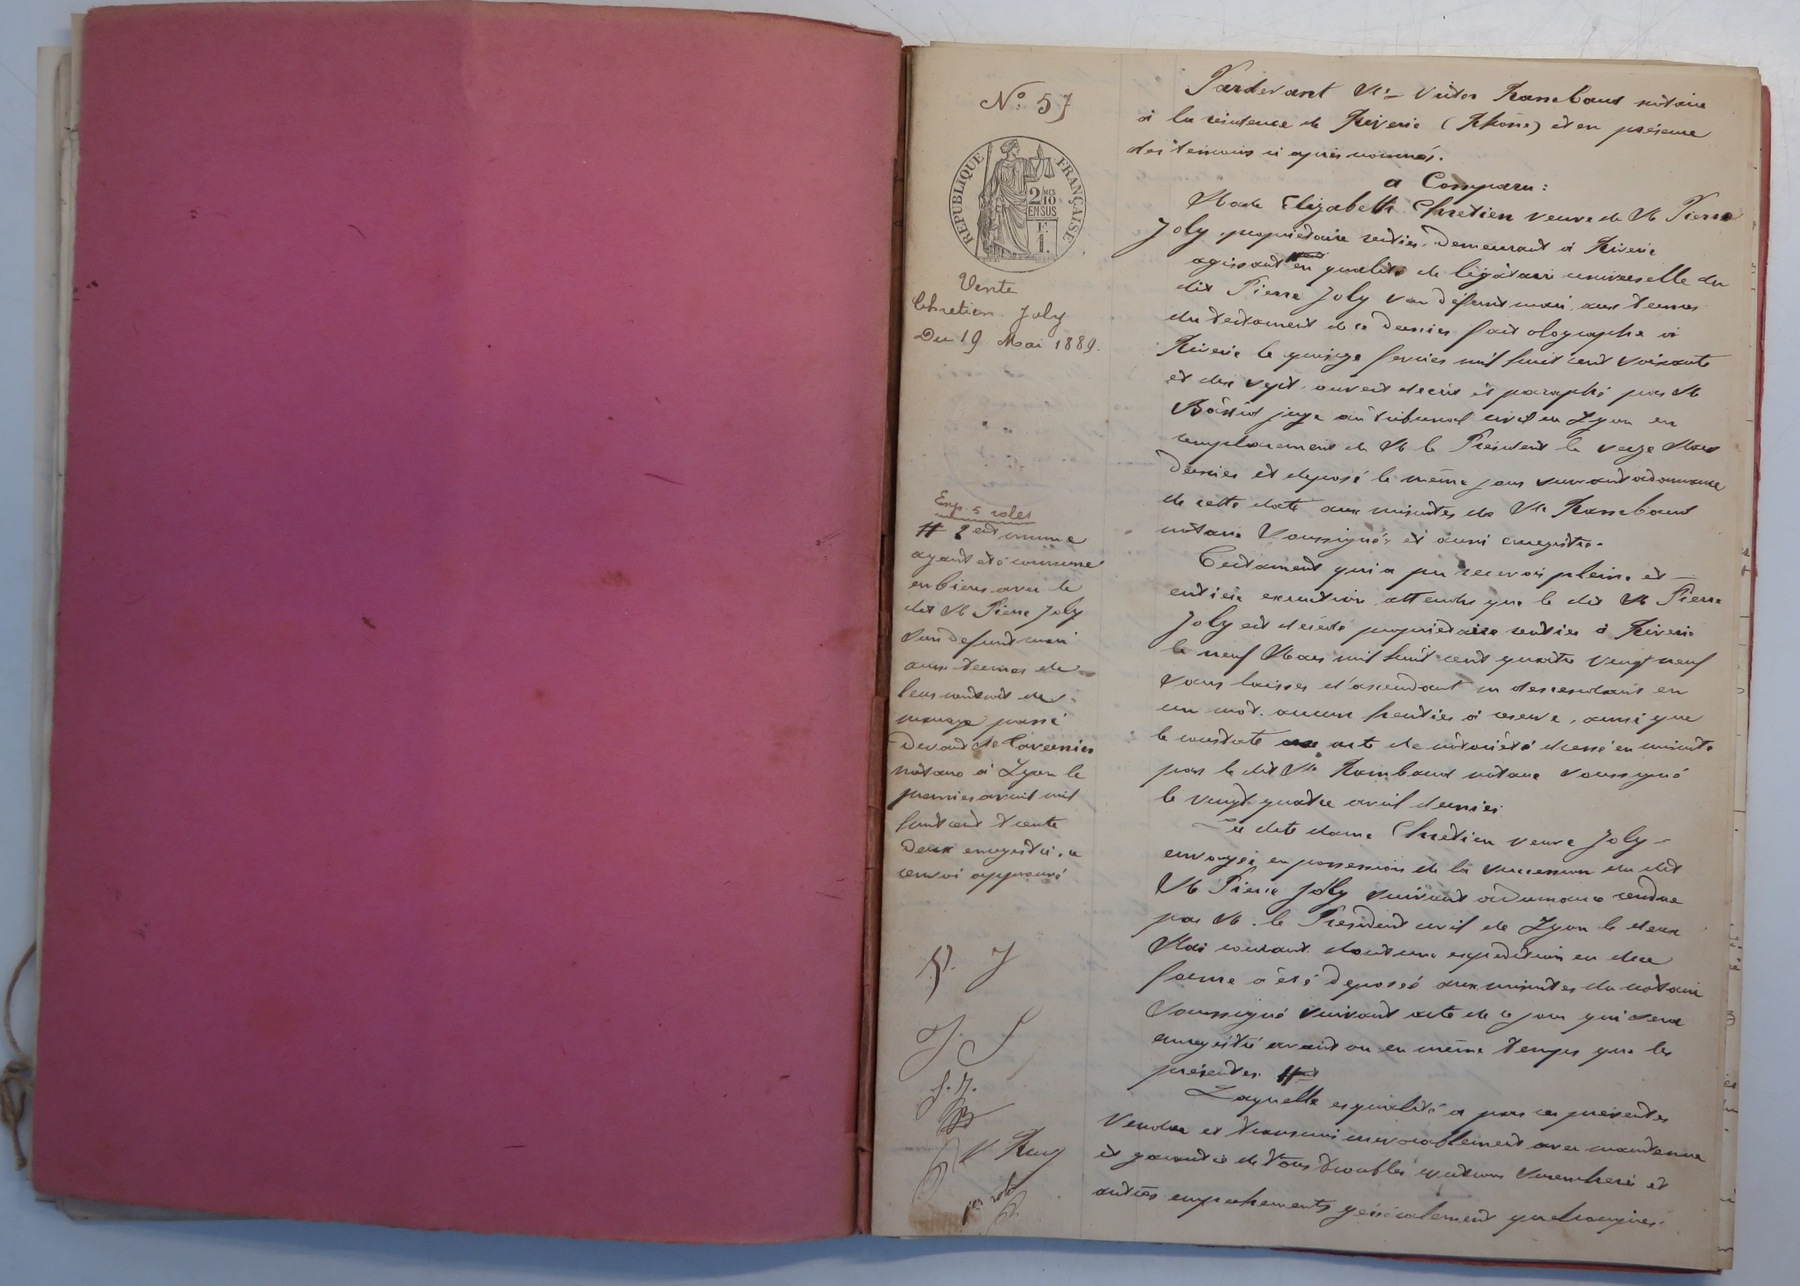 N° 57
RÉPUBLIQUE FRANÇAISE
2/10 MES
EN SUS
F.
1.
Vente
Chretien. Joly
Du 19 Mai 1889.
Exp. 5 roles
ayant été commune
en biens avec le
dit Mr Pierre Joly
son defunt mari
aux termes de
leur contrat de
mariage passé
Devant Me
notaire à Lyon le
premier avril mil
huit cent trente
Deux enregistré. ce
renvoi approuvé
Pardevant Me Victor Rambaud notaire
à la résidence de Riverie (Rhône) et en présence
des temoins ci après nommés.
a Comparu:
Made Elizabeth Chretien veuve de Mr Pierre
Joly propriétaire rentier. Demeurant à Riverie
agissant en qualité de légataire universelle du
dit Pierre Joly son défunt mari, aux termes
du testament de ce dernier fait olographe à
Riverie le quinze fevrier mil huit cent soixante
et dix sept. ouvert decrit et paraphé par Mr
juge au tribunal civil de Lyon en
remplacement de Mr le Président le Mars
dernier et déposé le même jour suivant ordonnance
de cette date aux minutes de Me Rambaud
notaire soussigné et aussi enregistré.
Testament qui a pu recevoir pleine et
entière exécution attendu que le dit Mr Pierre
Joly est décédé propriétaire rentier à Riverie
le neuf Mars mil huit cent quatre vingt neuf
sans laisser d'ascendant ni descendant en
un mot. aucun heritier à réserve, ainsi que
le constate acte de notoriété dressé en minute
par le dit Me Rambaud notaire soussigné
le vingt quatre avril dernier
La dite dame Chretien veuve Joly
envoyée en possession de la succession du dit
Mr Pierre Joly suivant ordonnance rendue
par Mr. le Président civil de Lyon le deux
Mai courant dont une expedition en due
forme a été déposée aux minutes du notaire
soussigné suivant acte de ce jour qui sera
enregistré avant ou en même temps que les
présentes.
Laquelle esqualité a par ces présentes
Vendu et transmis irrevocablement avec maintenue
et garantie de tous troubles évictions surenchère et
autres empechements généralement quelconques.